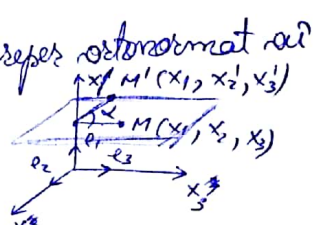 reper ortonormat aî
x₁ M'(x₁, x₂', x₃')
α M(x₁, x₂, x₃)
e₁
e₂ e₃
x₃